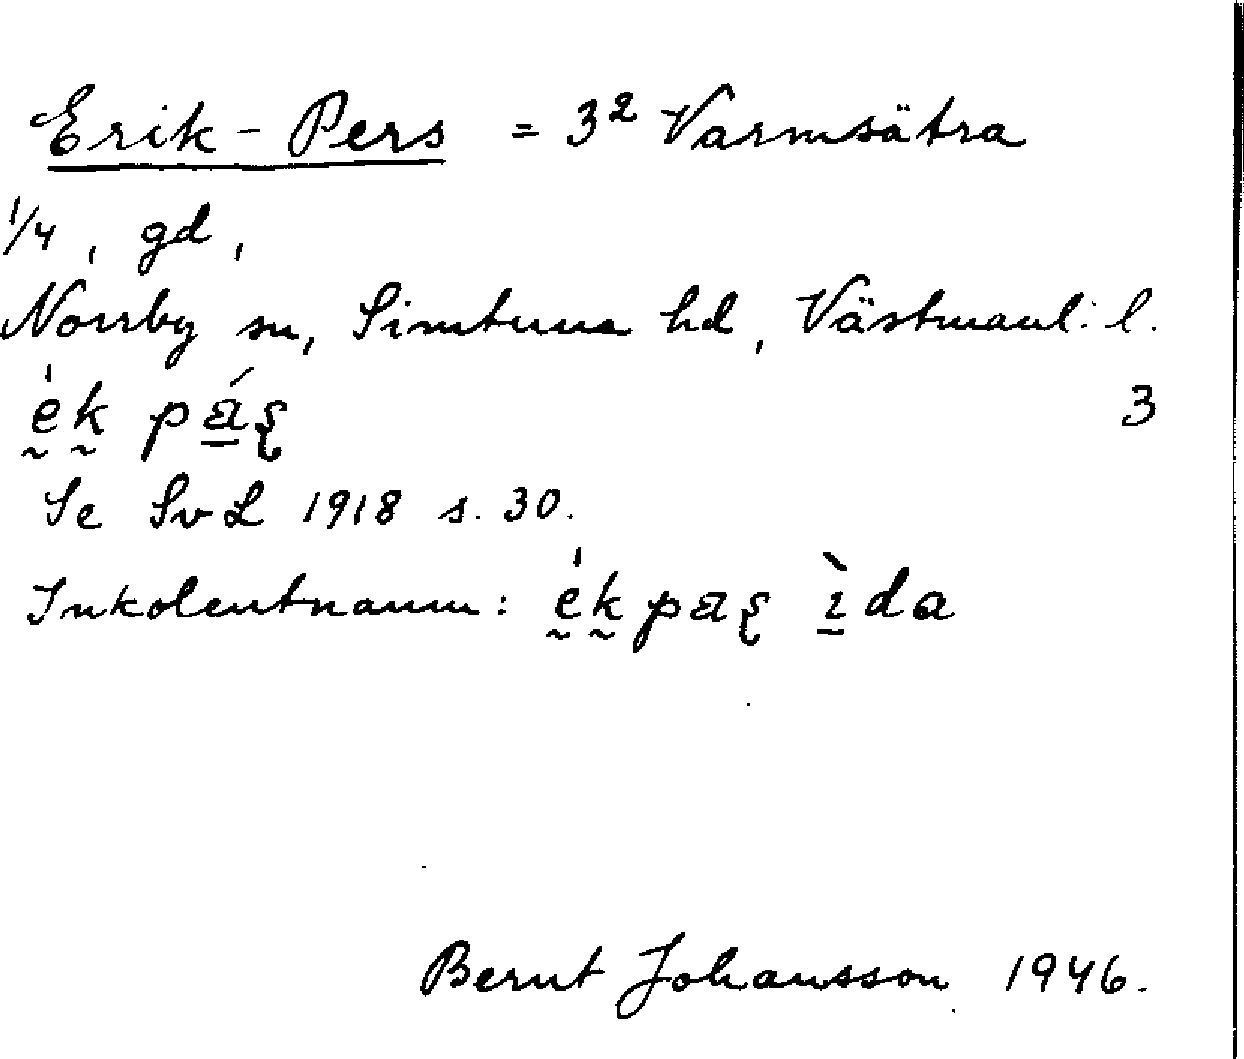 Erik-Pers = 3² Varmsätra
1/4, gd,
Norrby sn, Simtuna hd, Västmanl. l.
3
Se SvL 1918 s. 30.
Inkolentnamn:
Bernt Johansson 1946.